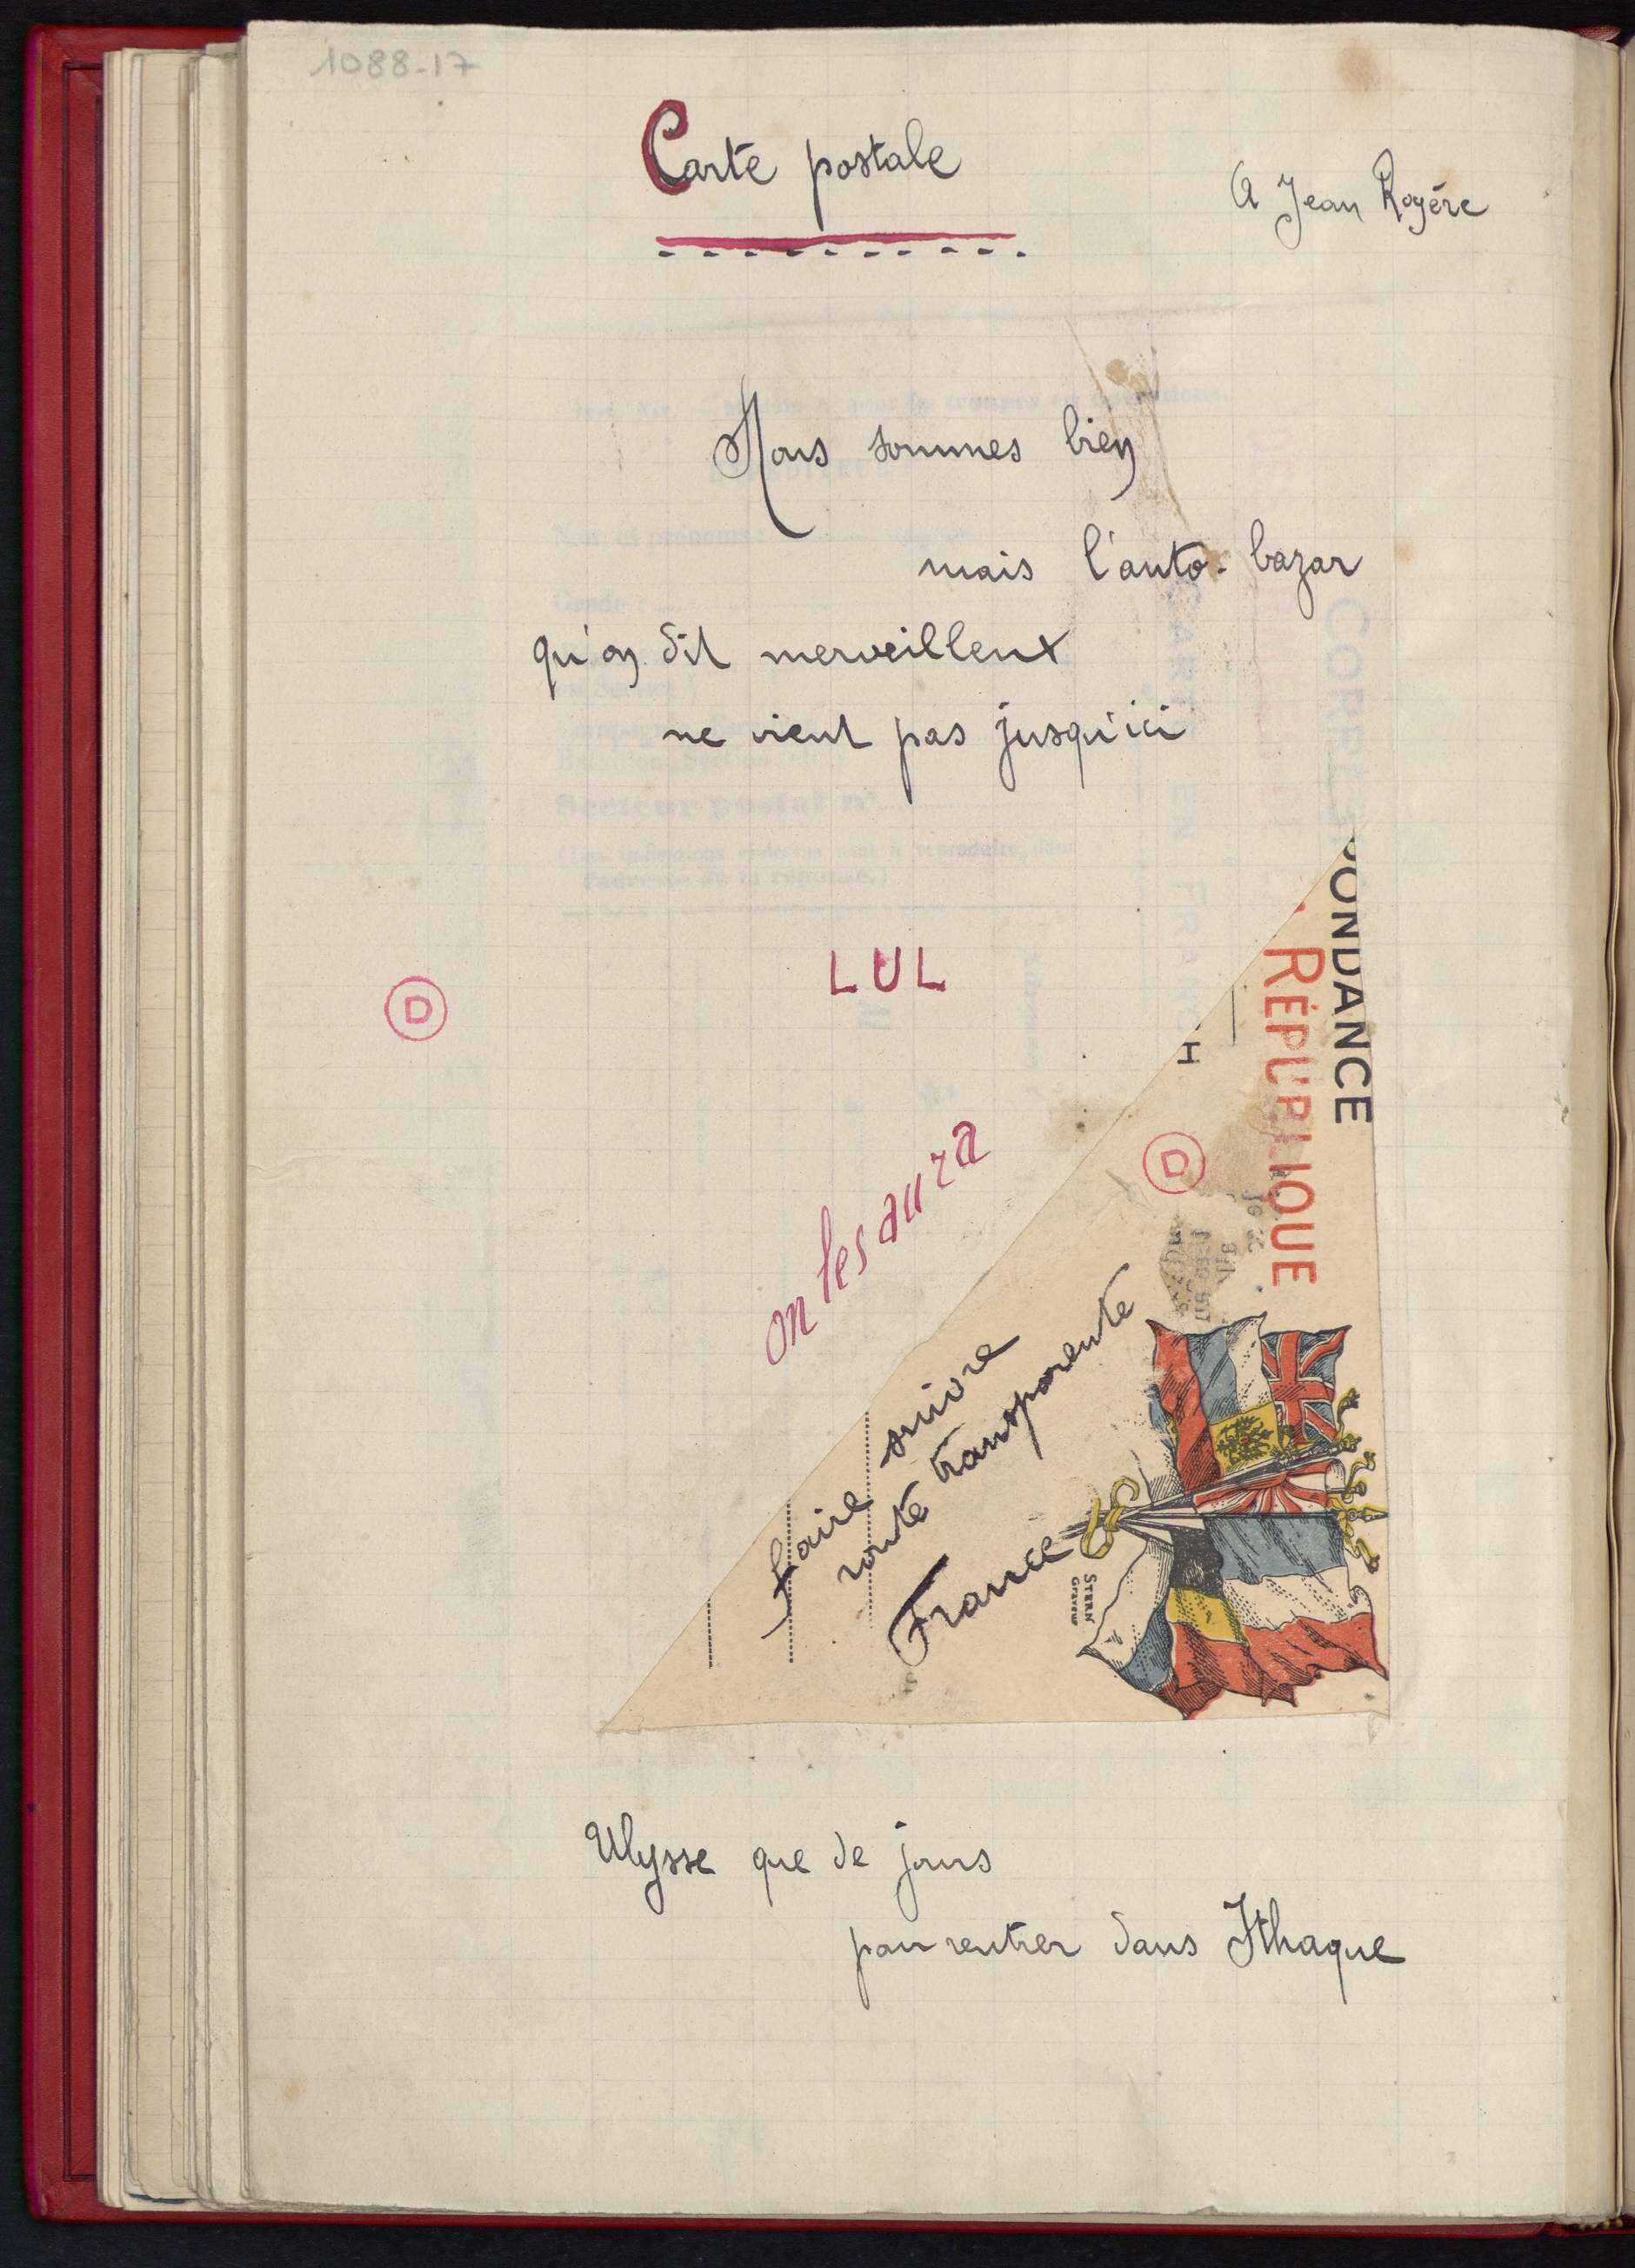 1088-17
Carte postale
A Jean Royère
Nous sommes bien
mais l'auto-bazar
qu'on dit merveilleux
ne vient pas jusqu'ici
LUL
D
on les aura
ONDANCE
RÉPUBLIQUE
D
faire suivre
route transparente
France
STERN
Graveur
Ulysse que de jours
pour rentrer dans Ithaque